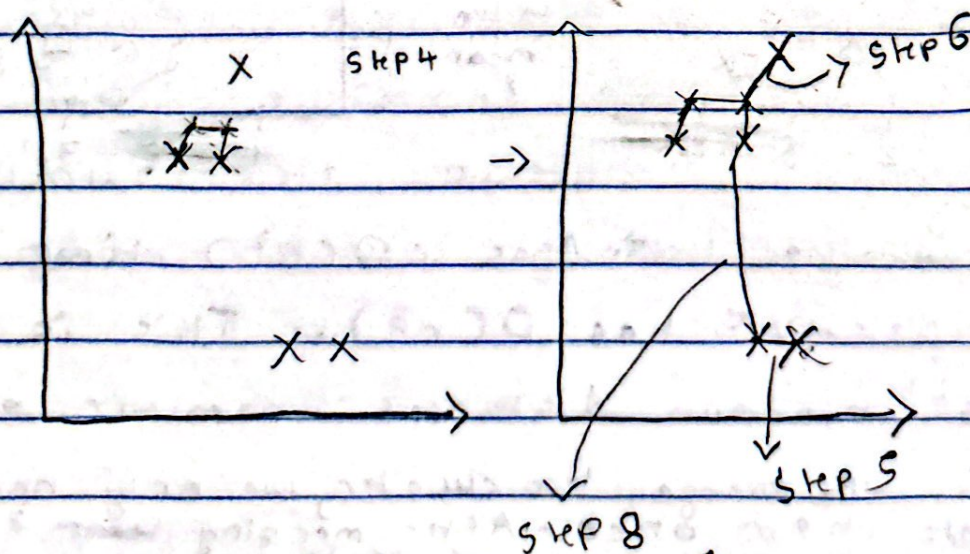 Step 4
Step 6
Step 5
Step 8